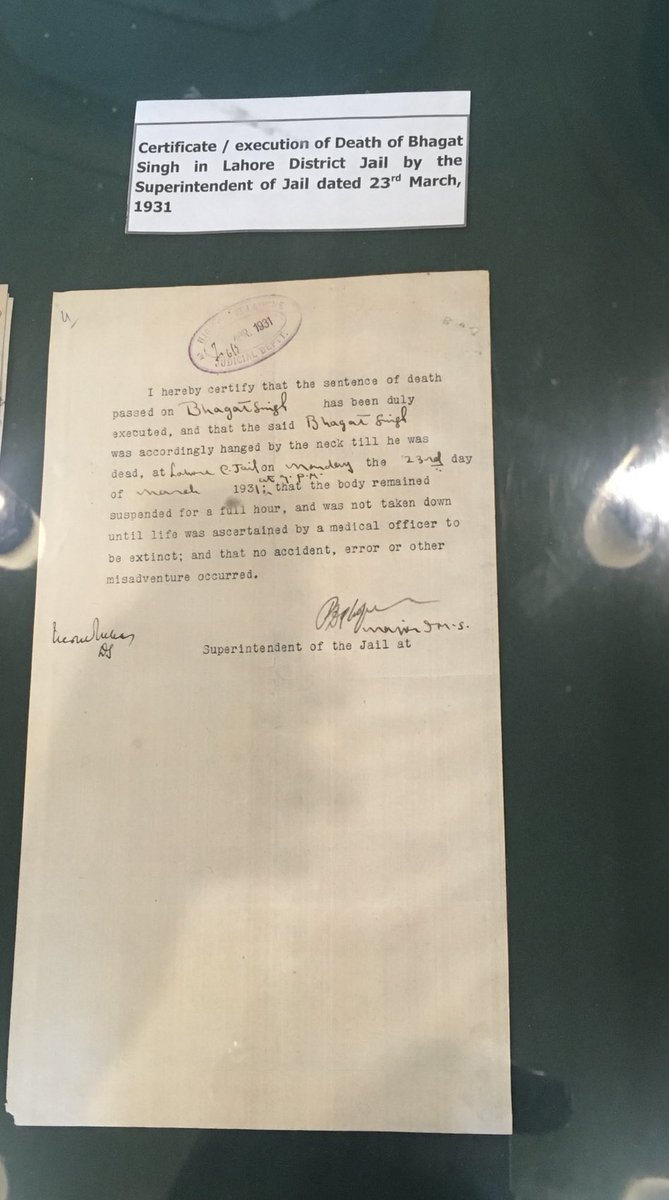 Certificate / execution of Death of Bhagat
Singh in Lahore District Jail by the
Superintendent of Jail dated 23rd March,
1931
APR. 1931
JUDICIAL DEPTT.
I hereby certify that the sentence of death
passed on Bhagat Singh has been duly
executed, and that the said Bhagat Singh
was accordingly hanged by the neck till he was
dead, at Lahore C. Jail on Monday the 23rd day
at 7. P.M.
of March 1931; that the body remained
suspended for a full hour, and was not taken down
until life was ascertained by a medical officer to
be extinct; and that no accident, error or other
misadventure occurred.
Major I.M.S.
Superintendent of the Jail at